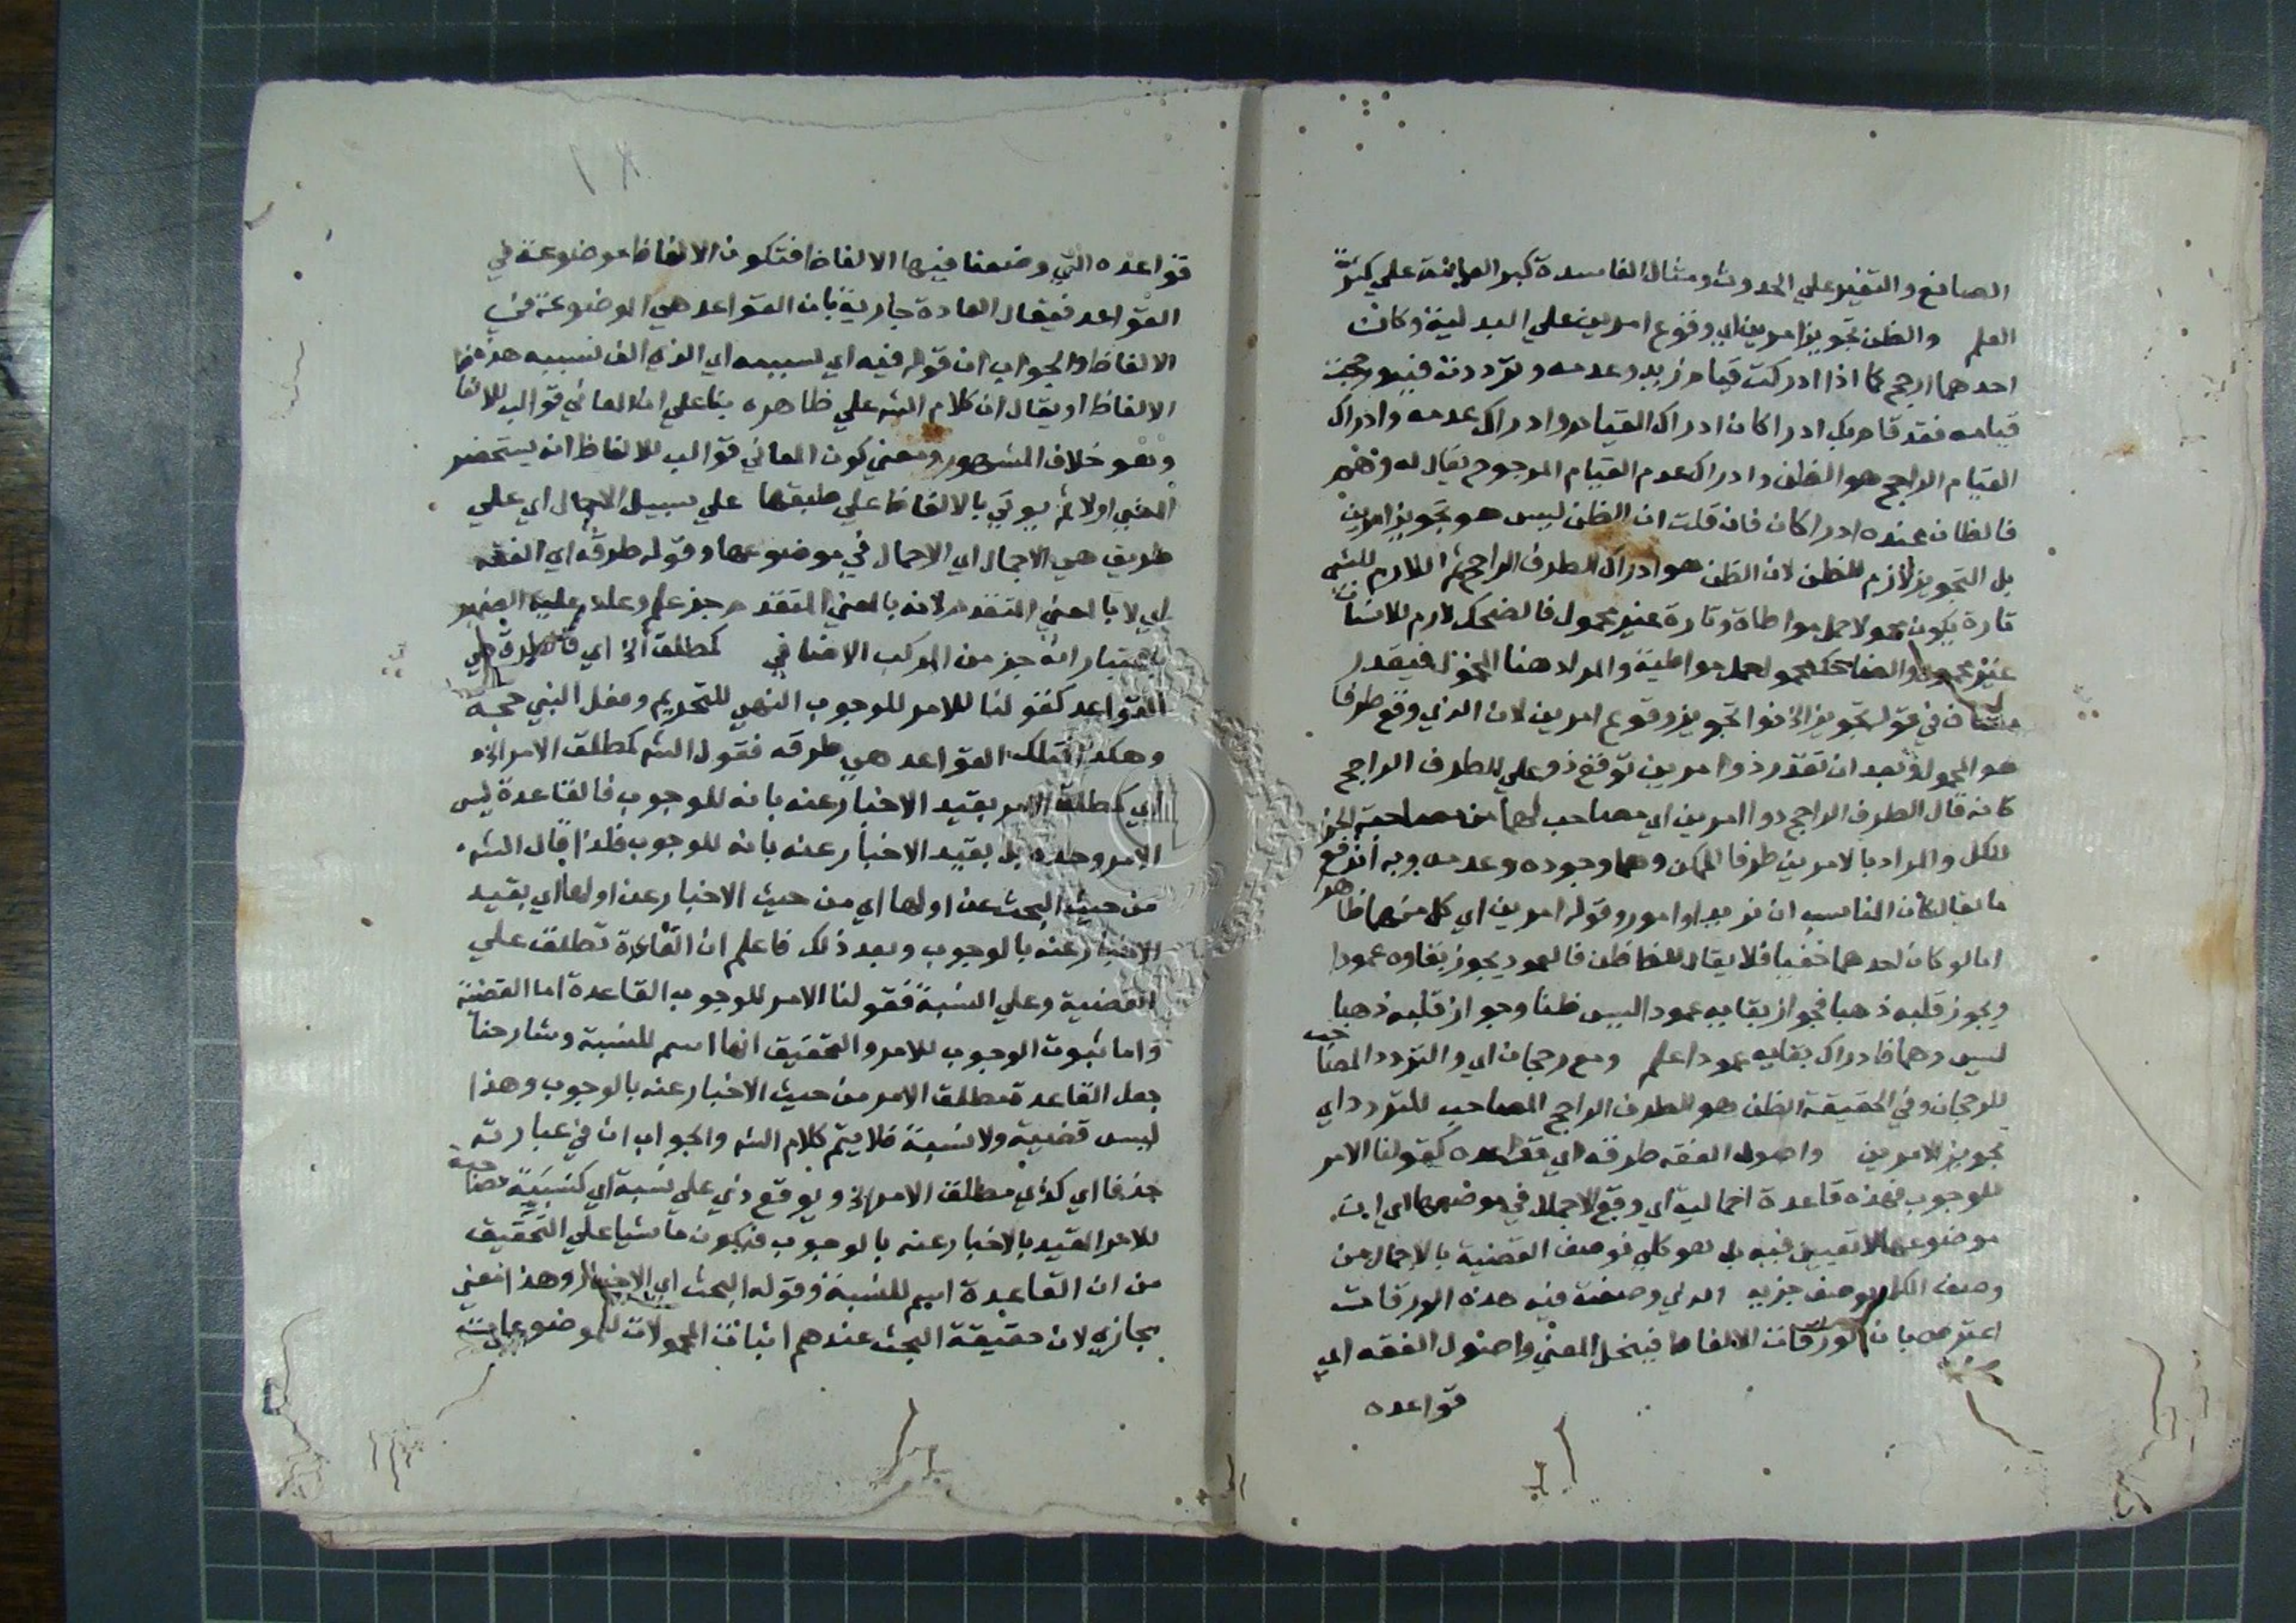 الصانع والتغير علي الحدوث ومثال الفاسدة كبر العمامة علي كثرة
العلم والظن تجويز امرين اي وقوع امرين علي البدلية وكان
احدهما ارجح كما اذا ادركت قيام زيد وعدمه وترددت فيه ورجحت
قيامه فقد قام بك ادراكان ادراك القيام وادراك عدمه وادراك
القيام الراجح هو الظن وادراك عدم القيام المرجوح يقال له وهم
فالظان عنده ادراكان فان قلت ان الظن ليس هو تجويز امرين
بل التجويز لازم للظن لان الظن هو ادراك الطرف الراجح ثم اللازم للشي
تارة يكون محمولا حمل مواطاة وتارة غير محمول فالضحك لازم للانسان
غير محمول والضاحك محمول حمل مواطية والمراد هنا فيقدر
مضاف في قوله تجويز الخ ذوا تجويز وقوع امرين لان الذي وقع طرفا
هو المحمول وبعد ان تقدر ذوا امرين توقع ذو علي الطرف الراجح
كانه قال الطرف الراجح ذوا امرين اي مصاحب لهما من مصاحبة الجز
للكل والمراد بالامرين طرفا الممكن وهما وجوده وعدمه وبه اندفع
ما يقال كان المناسب ان يزيد او امور وقوله امرين اي كل منهما ظاهر
اما لو كان احدهما خفيا فلا يقال للحفا ظن فالعمود يجوز بقاوه عمودا
ويجوز قلبه ذهبا فجواز بقايه عمودا ليس ظنا وجواز قلبه ذهبا
ليس وهما فادراك بقايه عمودا علم ومع رجحان اي والتردد المصاحب
للرجحان وفي الحقيقة الظن هو الطرف الراجح المصاحب للتردد اي
تجويز الامرين واصول الفقه طرقه اي قواعده كقولنا الامر
للوجوب فهذه قاعدة اجمالية اي وقع الاجمال في موضوعها اي ان
موضوعها لا تعيين فيه بل هو كلي فوصف القضية بالاجمال من
وصف الكل بوصف جزيه الذي وضعت فيه هذه الورقات
اعترض بان الورقات الالفاظ فينحل المعني واصول الفقه اي
قواعده
قواعده التي وضعنا فيها الالفاظ فتكون الالفاظ موضوعة في
القواعد فيقال العادة جارية بان القواعد هي الموضوعة في
الالفاظ والجواب ان قوله فيه اي لسببه اي الذي الف لسببه هذه
الالفاظ او يقال ان كلام الشه علي ظاهره بنا علي ان المعاني قوالب للالفا
وهو خلاف المشهور ومعني كون المعاني قوالب للالفاظ انه يستحضر
المعني اولا ثم يوتي بالالفاظ علي طبقها علي سبيل الاجمال اي علي
طريق هي الاجمال اي الاجمال في موضوعها وقوله طرقه اي الفقه
اي لا بالمعني المتقدم لانه بالمعني المتقدم جز علم وعاد عليه الضمير
باعتبار انه جز من المركب الاضافي كمطلق الخ اي فالطرق هي
القواعد كقولنا للامر للوجوب النهي للتحريم وفعل النبي حجة
وهكذا فتلك القواعد هي طرقه فقول الشه كمطلق الامر الخ
اي كمطلق الامر بقيد الاخبار عنه بانه للوجوب فالقاعدة ليس
الامر وحده بل بقيد الاخبار عنه بانه للوجوب فلذا قال الشه
من حيث البحث عن اولها اي من حيث الاخبار عن اولها اي بقيد
الاخبار عنه بالوجوب وبعد ذلك فاعلم ان القاعدة تطلق علي
القضية وعلي النسبة فقولنا الامر للوجوب القاعدة اما القضية
واما ثبوت الوجوب للامر والتحقيق انها اسم للنسبة وشارحنا
جعل القاعدة مطلق الامر من حيث الاخبار عنه بالوجوب وهذا
ليس قضية ولا نسبة فلا يتم كلام الشه والجواب ان في عبارته
حذفا اي كذي مطلق الامر الخ ويوقع ذي علي نسبة اي كنسبة مصاحبة
للامر المقيد بالاخبار عنه بالوجوب فيكون ماشيا علي التحقيق
من ان القاعدة اسم للنسبة وقوله البحث اي الاخبار وهذا معني
مجازي لان حقيقة البحث عندهم اثبات المحمولات للموضوعات